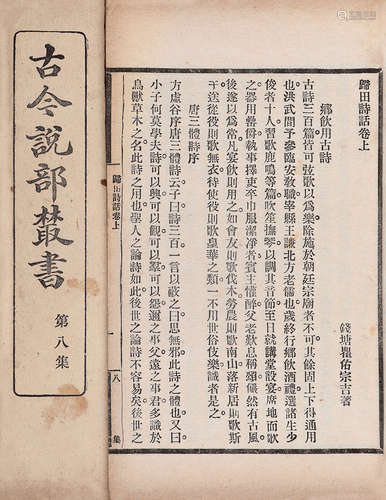 古今說部叢書
第八集
歸田詩話卷上
錢塘瞿佑宗吉著
鄉飲用古詩
古詩三百篇皆可弦歌以爲樂除施於朝廷宗廟者不可其餘固上下得通用
也洪武間予參臨安敎職宰縣王謙北方老儒也歲終行鄉飲酒禮選諸生少
俊者十人習歌鹿鳴等篇吹笙撫琴以調其音節至日就講堂設宴席地而歌
之器用罍爵執事擇吏卒巾服潔淨者賓主懽醉父老歎息稱頌儼然有古風
後遂以爲常凡宴飲則用之如會友則歌伐木勞農則歌南山落新居則歌斯
干送從役則歌無衣待使役則歌皇華之類一不用世俗伎樂識者是之
唐三體詩序
方虛谷序唐三體詩云子曰詩三百一言以蔽之曰思無邪此詩之體也又曰
小子何莫學夫詩可以興可以觀可以羣可以怨邇之事父遠之事君多識於
鳥獸草木之名此詩之用也聖人之論詩如此後世之論詩不容易矣後世之
歸田詩話卷上
一
八集